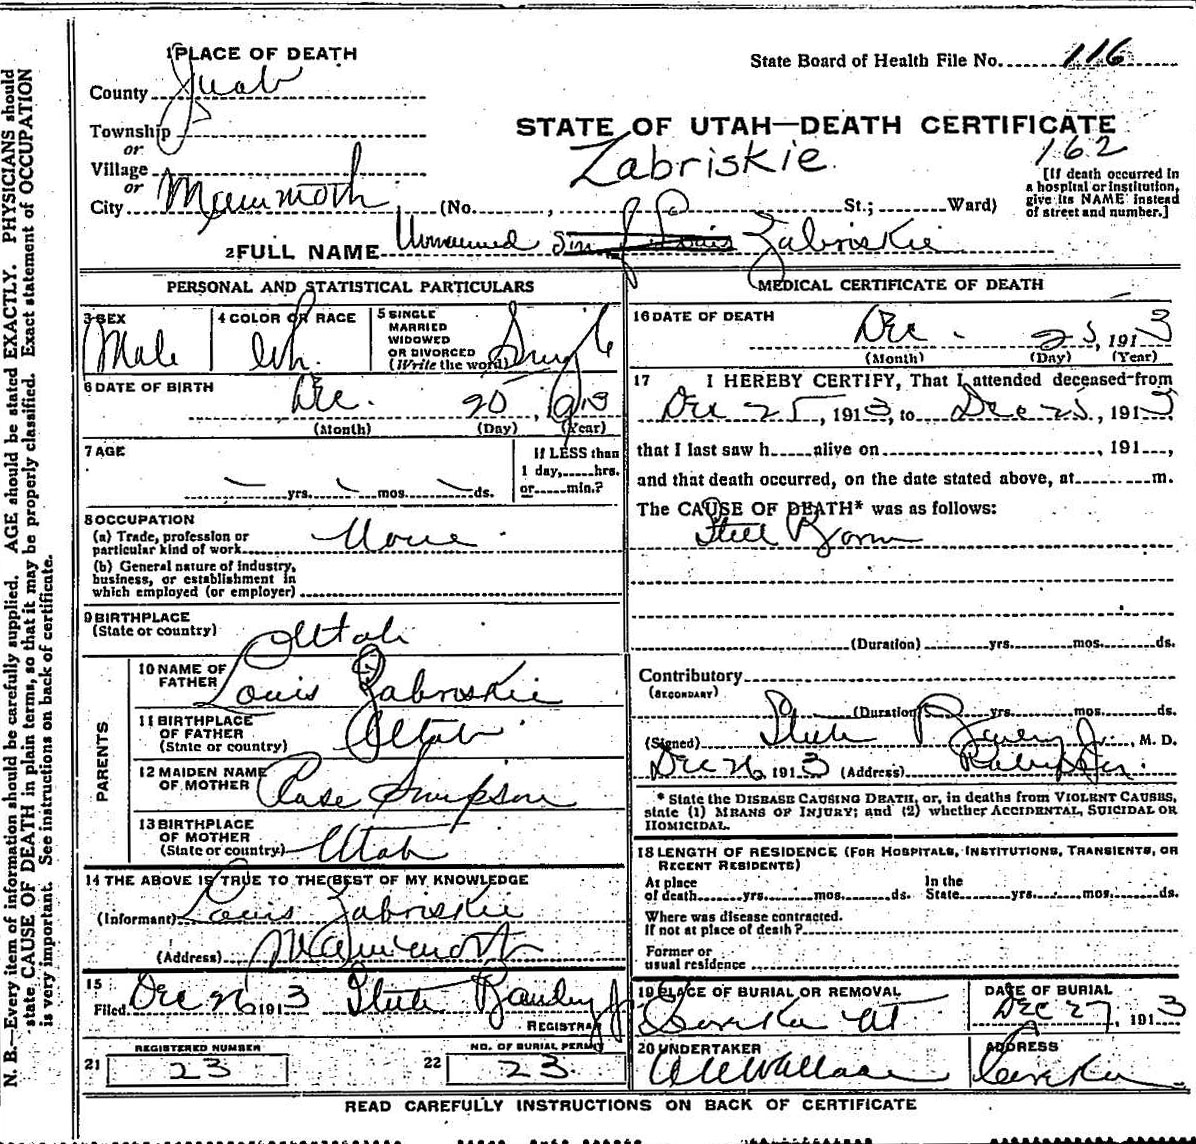 N. B.—Every item of information should be carefully supplied. AGE should be stated EXACTLY. PHYSICIANS should
state CAUSE OF DEATH in plain terms, so that it may be properly classified. Exact statement of OCCUPATION
is very important. See instructions on back of certificate.
1 PLACE OF DEATH
State Board of Health File No. 116
County Juab
Township
or
STATE OF UTAH—DEATH CERTIFICATE
Zabriskie. 162
Village
or
City Mammoth (No. , St.; Ward)
[If death occurred in
a hospital or institution,
give its NAME instead
of street and number.]
2 FULL NAME Unnamed Zabriskie
PERSONAL AND STATISTICAL PARTICULARS
3 SEX Male
4 COLOR OR RACE Wh.
5 SINGLE
MARRIED
WIDOWED
OR DIVORCED
(Write the word) Single
6 DATE OF BIRTH
Dec. 25, 1913
(Month) (Day) (Year)
7 AGE
yrs. mos. ds.
If LESS than
1 day, hrs.
or min.?
8 OCCUPATION
(a) Trade, profession or
particular kind of work None
(b) General nature of industry,
business, or establishment in
which employed (or employer)
9 BIRTHPLACE
(State or country) Utah
PARENTS
10 NAME OF
FATHER Louis Zabriskie
11 BIRTHPLACE
OF FATHER
(State or country) Utah
12 MAIDEN NAME
OF MOTHER Rose Simpson
13 BIRTHPLACE
OF MOTHER
(State or country) Utah
14 THE ABOVE IS TRUE TO THE BEST OF MY KNOWLEDGE
(Informant) Louis Zabriskie
(Address) Mammoth
15
Filed Dec 26 1913 Steele Bailey Jr
REGISTRAR
REGISTERED NUMBER
21 23
NO. OF BURIAL PERMIT
22 23
MEDICAL CERTIFICATE OF DEATH
16 DATE OF DEATH
Dec. 25, 1913
(Month) (Day) (Year)
17 I HEREBY CERTIFY, That I attended deceased from
Dec 25, 1913, to Dec 25, 1913
that I last saw h alive on , 191 ,
and that death occurred, on the date stated above, at m.
The CAUSE OF DEATH* was as follows:
Still Born
(Duration) yrs. mos. ds.
Contributory
(SECONDARY)
(Duration) yrs. mos. ds.
(Signed) Steele Bailey Jr., M. D.
Dec 26, 1913 (Address)
* State the DISEASE CAUSING DEATH, or, in deaths from VIOLENT CAUSES,
state (1) MEANS OF INJURY; and (2) whether ACCIDENTAL, SUICIDAL OR
HOMICIDAL.
18 LENGTH OF RESIDENCE (FOR HOSPITALS, INSTITUTIONS, TRANSIENTS, OR
RECENT RESIDENTS)
At place
of death yrs. mos. ds.
In the
State yrs. mos. ds.
Where was disease contracted.
If not at place of death?
Former or
usual residence
19 PLACE OF BURIAL OR REMOVAL
Eureka UT
DATE OF BURIAL
Dec 27, 1913
20 UNDERTAKER
Wallace
ADDRESS
Eureka
READ CAREFULLY INSTRUCTIONS ON BACK OF CERTIFICATE